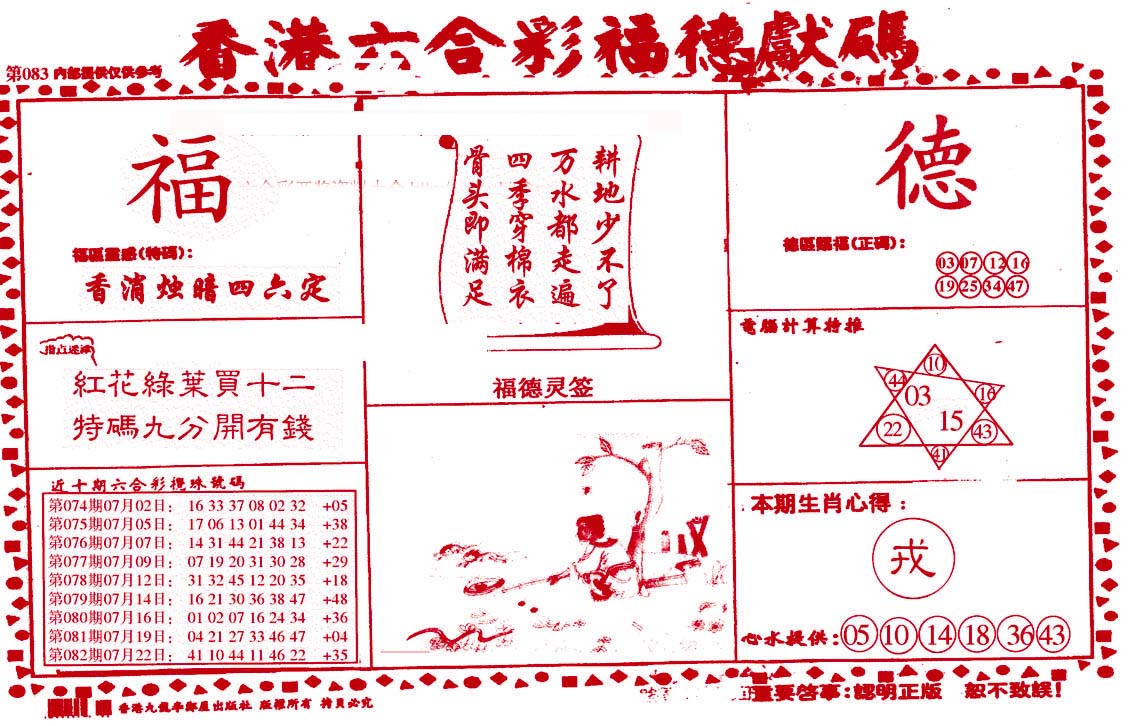 香港六合彩福德獻碼
第083 内部提供仅供参考
福
福區靈感(特碼):
香消烛暗四六定
指点迷津
紅花綠葉買十二
特碼九分開有錢
近十期六合彩攪珠號碼
第074期07月02日: 16 33 37 08 02 32 +05
第075期07月05日: 17 06 13 01 44 34 +38
第076期07月07日: 14 31 44 21 38 13 +22
第077期07月09日: 07 19 20 31 30 28 +29
第078期07月12日: 31 32 45 12 20 35 +18
第079期07月14日: 16 21 30 36 38 47 +48
第080期07月16日: 01 02 07 16 24 34 +36
第081期07月19日: 04 21 27 33 46 47 +04
第082期07月22日: 41 10 44 11 46 22 +35
耕地少不了
万水都走遍
四季穿棉衣
骨头即满足
福德灵签
德
德區賜福(正碼):
03 07 12 16
19 25 34 47
電腦計算特推
10
44 03 16
22 15 43
41
本期生肖心得:
戎
心水提供: 05 10 14 18 36 43
重要啓事:認明正版 恕不致誤!
版權所有